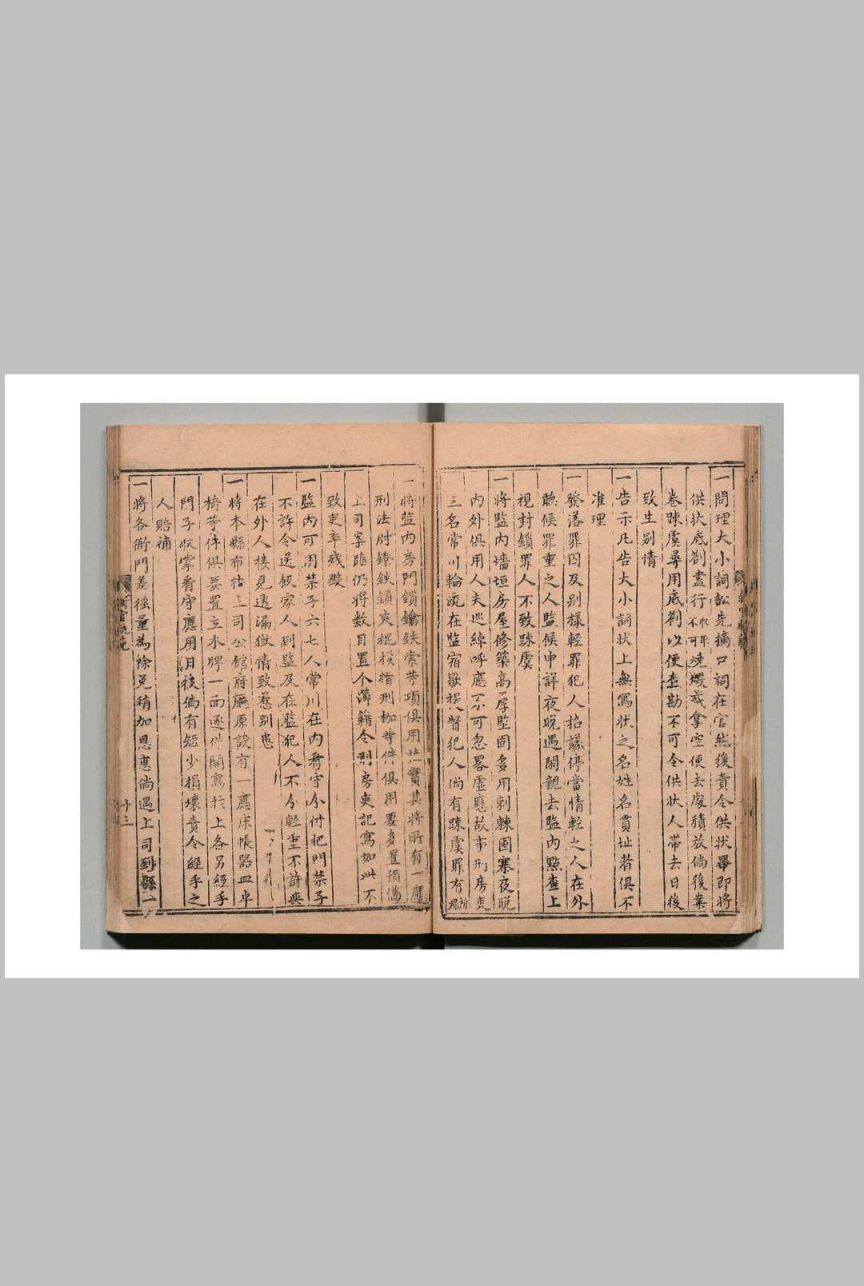 一問理大小詞訟先摘口詞在官然後責令供狀畢即將
供狀底劄盡行不可燒燬或拿空便去處積放倘後案
卷踈虞尋用底劄以便查勘不可令供狀人帶去日後
致生别情
一告示凡告大小詞狀上無寫狀之名姓名貫址者俱不
准理
一發落罪囚及别樣輕罪犯人招議停當情輕之人在外
聽候罪重之人監候申詳夜晚遇閑親去監内點查上
視封鎖罪人不致踈虞
一將監内墻垣房屋修築高厚堅固多用刺棘圍寨夜晚
内外俱用人夫巡綽呼應不可忽畧虛應故事刑房吏
三名常川輪流在監宿歇提督犯人倘有踈虞罪有所歸
一將監内房門鎖鑰鉄索等項俱用其將所有一應
刑法肘鐐鉄鎖夾棍桚指刑枷等件俱用要多置預偹
上司案臨仍将数目置个薄籍令刑房吏記寫如此不
致吏卒残毁
一監内可用禁子六七人常川在内看守分付把門禁子
不許令送飯家人到監及在監犯人不分輕重不許與
在外人接見透漏獄情致惹别患
一將本縣布按二司公館府廳原設有一應床帳器皿卓
椅等件俱要置立水牌一面逐件開寫於上各另經手
門子收掌看守應用日後倘有短少損壞責令經手之
人賠補
一將各衙門差徭量為除免稍加恩惠倘遇上司到縣一
十三